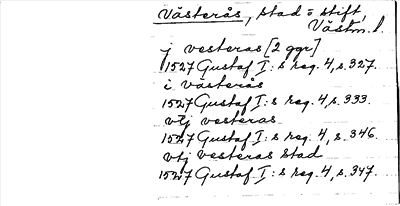 Västerås, stad o stift,
Västm. l.
j vesteras [2 ggr]
1527 Gustaf I:s reg. 4, s. 327.
i västerås
1527 Gustaf I:s reg. 4, s. 333.
vtj vesteras
1527 Gustaf I:s reg. 4, s. 346.
vtj vesteras stad
1527 Gustaf I:s reg. 4, s. 347.